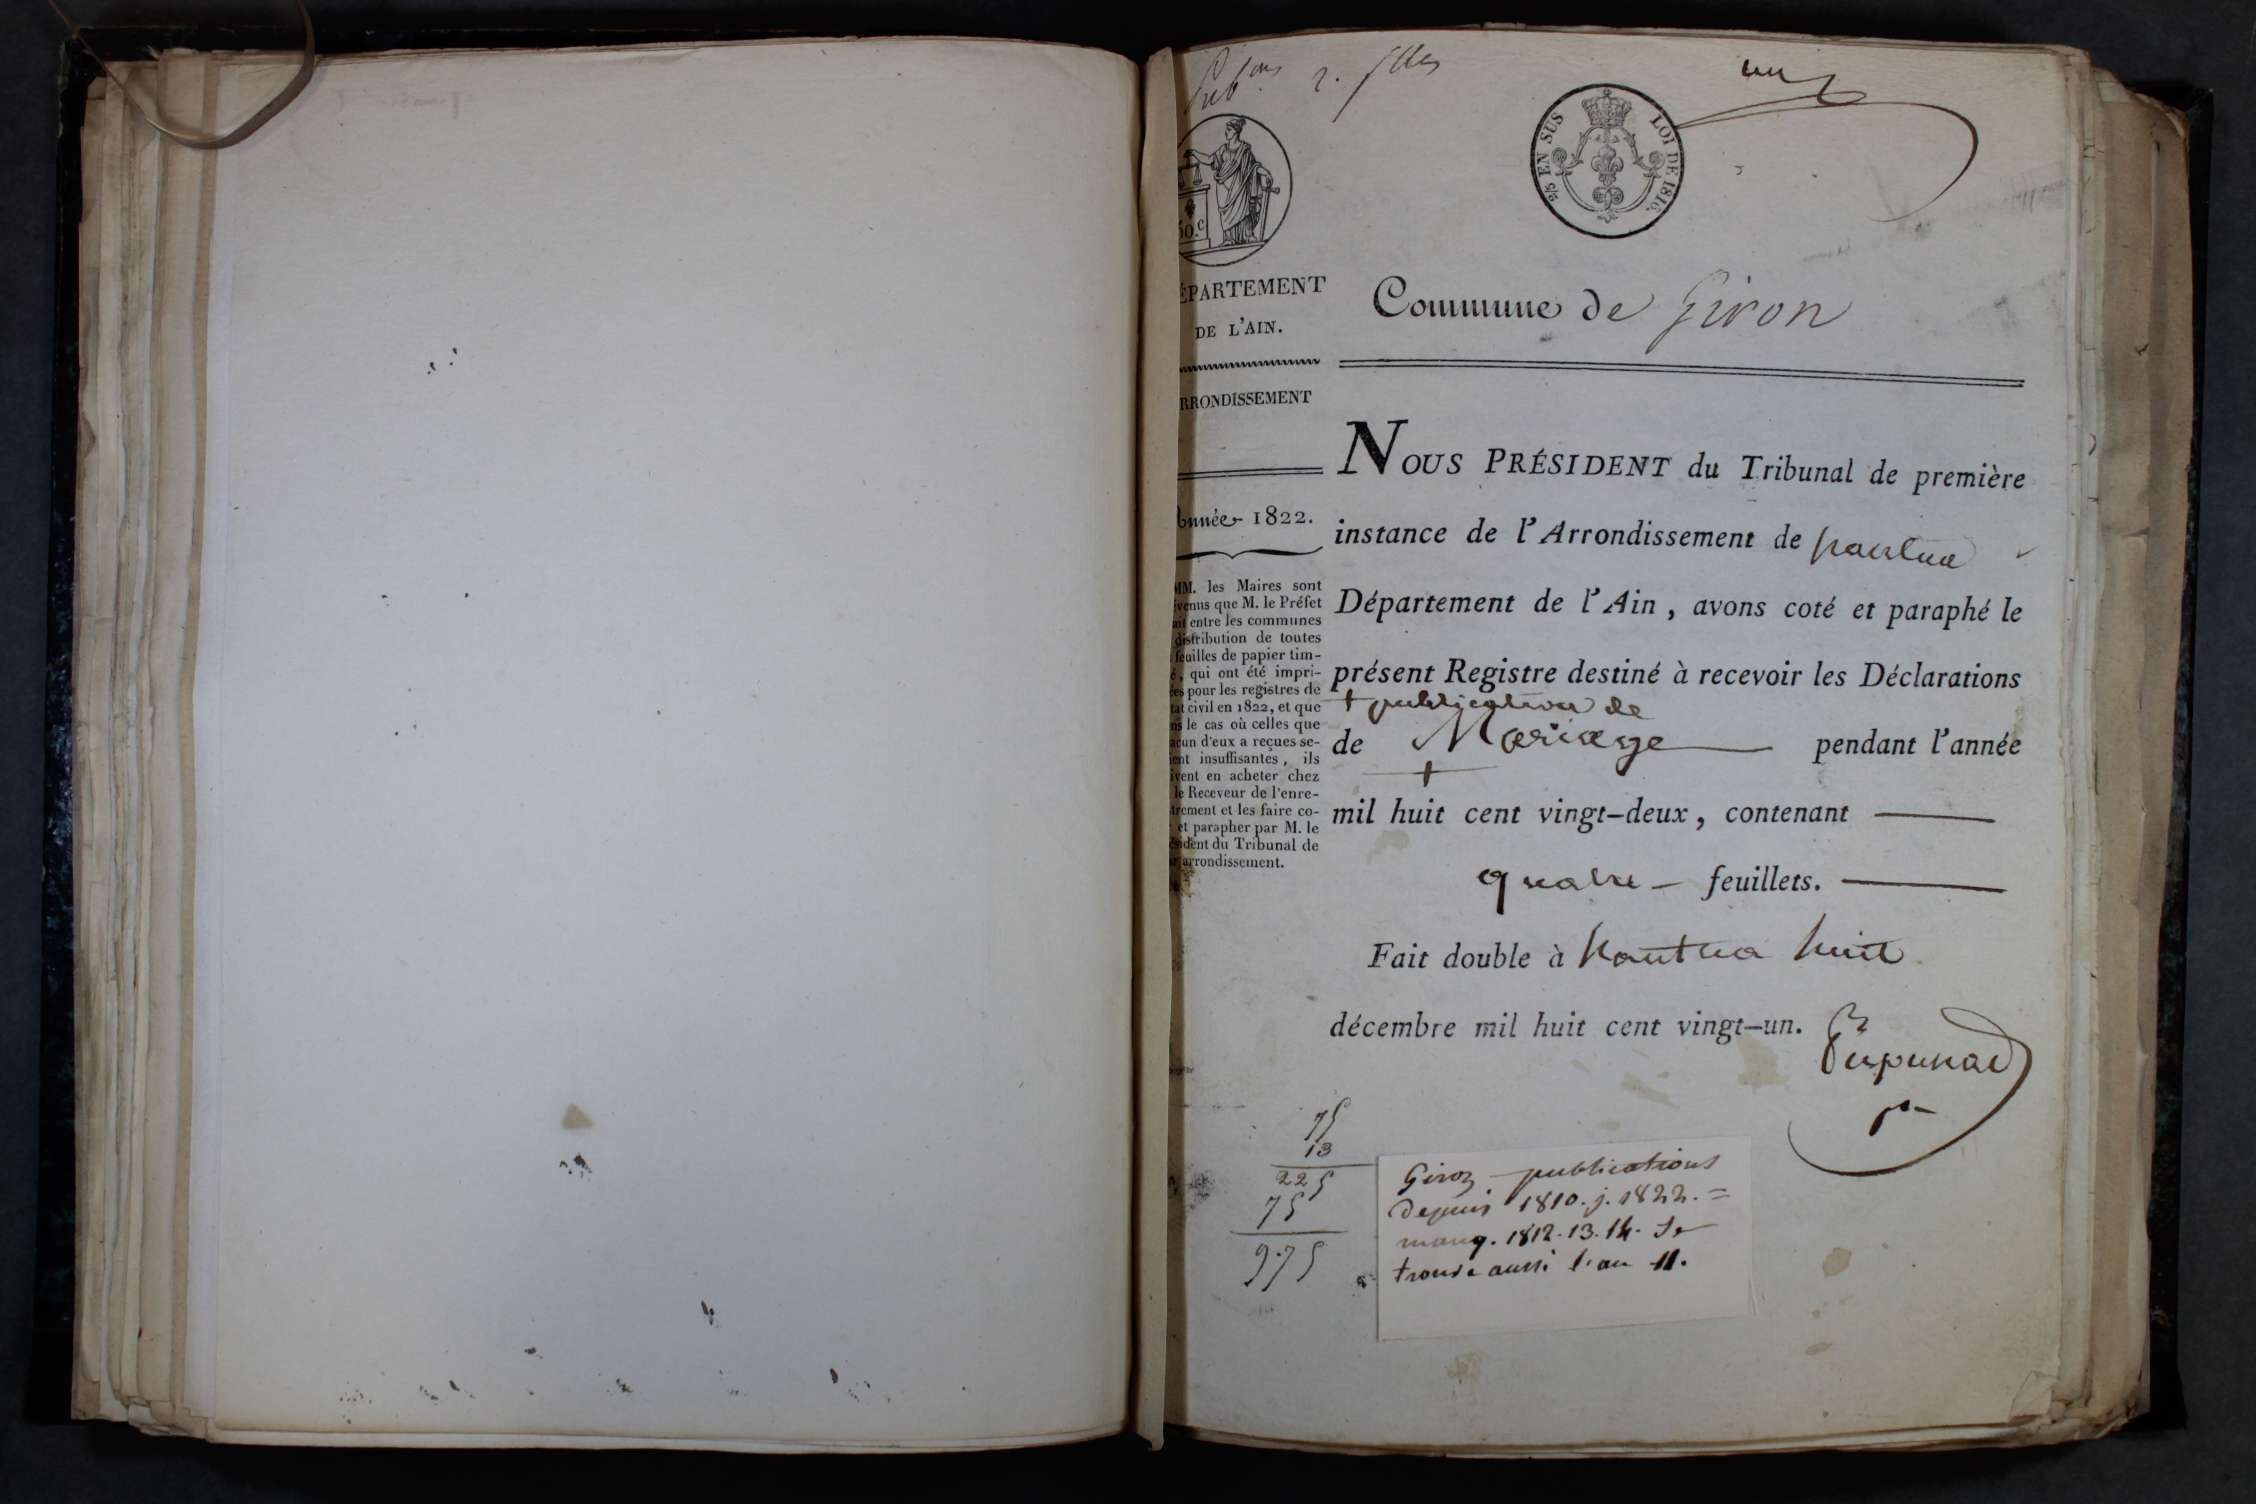 Pub.ons 2. flles
un
2/5 EN SUS LOI DE 1816.
50.c
ÉPARTEMENT
DE L'AIN.
RRONDISSEMENT
Année 1822.
MM. les Maires sont
évenus que M. le Préfet
ait entre les communes
distribution de toutes
feuilles de papier tim-
é, qui ont été impri-
ées pour les registres de
tat civil en 1822, et que
ns le cas où celles que
acun d'eux a reçues se-
ient insuffisantes, ils
ivent en acheter chez
le Receveur de l'enre-
trement et les faire co-
et parapher par M. le
ésident du Tribunal de
ur arrondissement.
Commune de Giron
NOUS PRÉSIDENT du Tribunal de première
instance de l'Arrondissement de Nantua
Département de l'Ain, avons coté et paraphé le
présent Registre destiné à recevoir les Déclarations
+ publication de
de Mariage pendant l'année
+
mil huit cent vingt-deux, contenant
quatre feuillets.
Fait double à Nantua huit
décembre mil huit cent vingt-un.
75
13
225
75
975
Giron publications
depuis 1810. j. 1822. =
manq. 1812. 13. 14. Se
trouve aussi l'an 11.